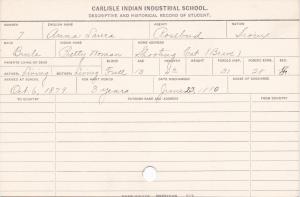 CARLISLE INDIAN INDUSTRIAL SCHOOL.
DESCRIPTIVE AND HISTORICAL RECORD OF STUDENT.
NUMBER ENGLISH NAME AGENCY NATION
7 Anna Rosebud Sioux
BAND INDIAN NAME HOME ADDRESS
Brule Pretty Woman Shooting Cat (Brave)
PARENTS LIVING OR DEAD BLOOD AGE HEIGHT WEIGHT FORCED INSP. FORCED EXPR. SEX
FATHER Living MOTHER Living Full 13 31 28
ARRIVED AT SCHOOL FOR WHAT PERIOD DATE DISCHARGED CAUSE OF DISCHARGE
Oct. 6, 1879 3 years June 23, 1880
TO COUNTRY PATRONS NAME AND ADDRESS FROM COUNTRY